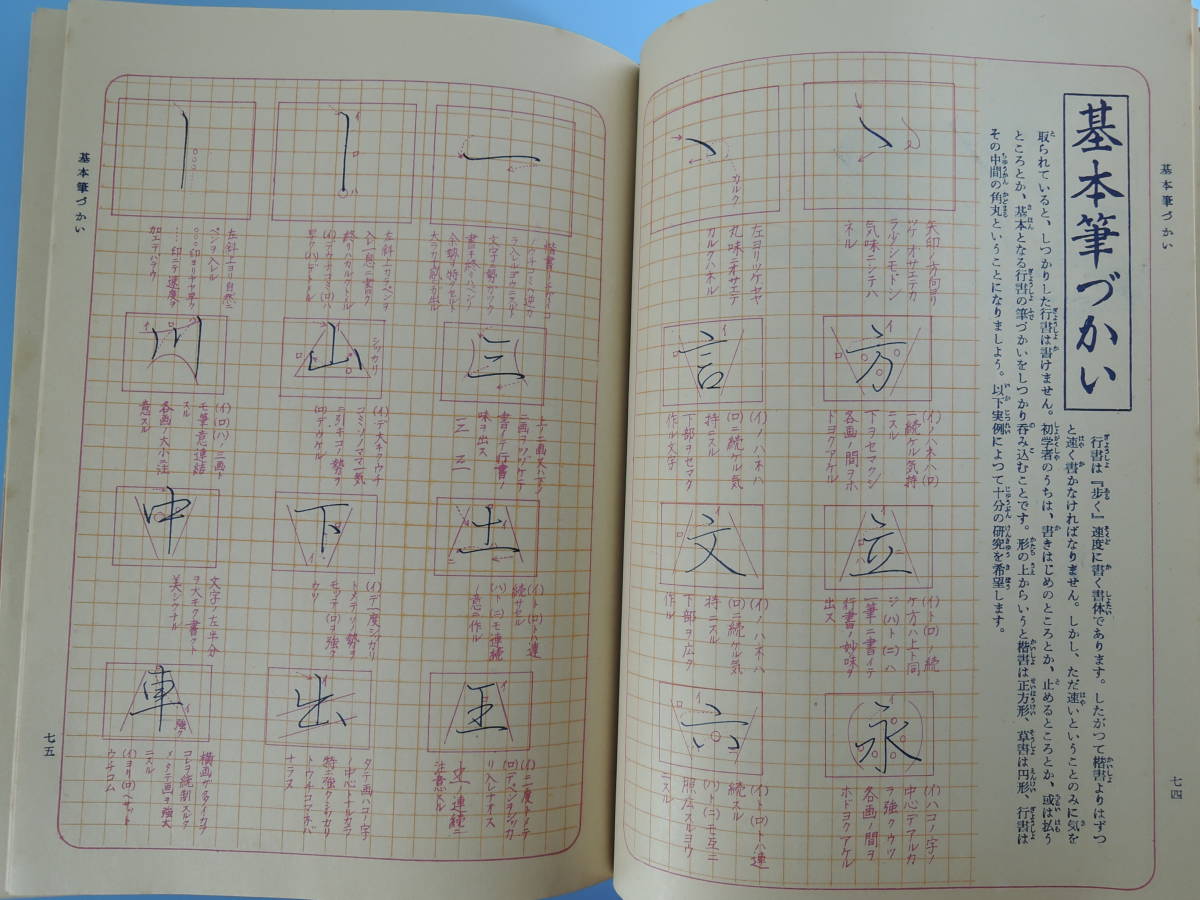 基本筆づかい
七四
基本筆づかい
行書は『歩く』速度に書く書体であります。したがつて楷書よりはずつ
と速く書かなければなりません。しかし、ただ速いということのみに気を
取られていると、しつかりした行書は書けません。初学者のうちは、書きはじめのところとか、止めるところとか、或は払う
ところとか、基本となる行書の筆づかいをしつかり呑み込むことです。形の上からいうと楷書は正方形、草書は円形、行書は
その中間の角丸ということになりましよう。以下実例によつて十分の研究を希望します。
矢印ノ方向ヨリ
ツケオサエテカ
気味ニシテハ
ネル
方
(イ)ノハネハ(ロ)
ニ続ケル気持
ニスル
下ヲセマクシ
各画ノ間ヲホ
ドヨクアケル
立
(イ)ト(ロ)ノ続
ケ方ハ上ト同
ジ(ハ)ト(ニ)ハ
一筆ニ書イテ
行書ノ妙味ヲ
出ス
永
(イ)ハコノ字ノ
中心デアルカ
ラ強クウツ
各画ノ間ヲ
ホドヨクアケル
カルク
左ヨリツケヤヤ
丸味ニオサエテ
カルクハネル
言
(イ)ノハネハ
(ロ)ニ続ケル気
持ニスル
下部ヲセマク
作ル文字
文
(イ)ノハネハ
(ロ)ニ続ケル気
持ニスル
下部ヲ広ク
作ル
六
(イ)ト(ロ)トハ連
続スル
(ハ)ト(ニ)モ互ニ
照応スルヨウ
ニスル
一
三
書イテ行書ノ
味ヲ出ス
土
(イ)ト(ロ)トハ連
続サセル
(ハ)ト(ニ)モ連続
ノ意ニ作ル
王
(イ)ニ一度トメテ
(ロ)デペンヲシツカ
リ入レナオス
注意スル
左斜上カラペンヲ
入レ一息ニ書ク
終リハカルクトメル
山
シツカリ
下
(イ)デ一度シツカリ
トメテソノ勢ヲ
モツテ(ロ)ヲ強ク
カク
出
タテ画ハコノ字
ノ中心トナルカラ
特ニ強クシツカリ
トウチコマネバ
ナラヌ
左斜上ヨリ自然ニ
ペンヲ入レル
○○○印ヨリヤヤ早ク
……印ニテ速度ヲ
加エテハラウ
川
(イ)(ロ)(ハ)ノ三画ト
モ筆意ハ連結
スル
各画ノ大小ニ注
意スル
中
文字ノ左半分
ヲ大キク書クト
美シクナル
車
強ク
横画ガ多イカラ
コレヲ統制スルタ
メタテ画ヲ強大
ニスル
(イ)ヨリ(ロ)ヘサツト
ウチコム
基本筆づかい
七五